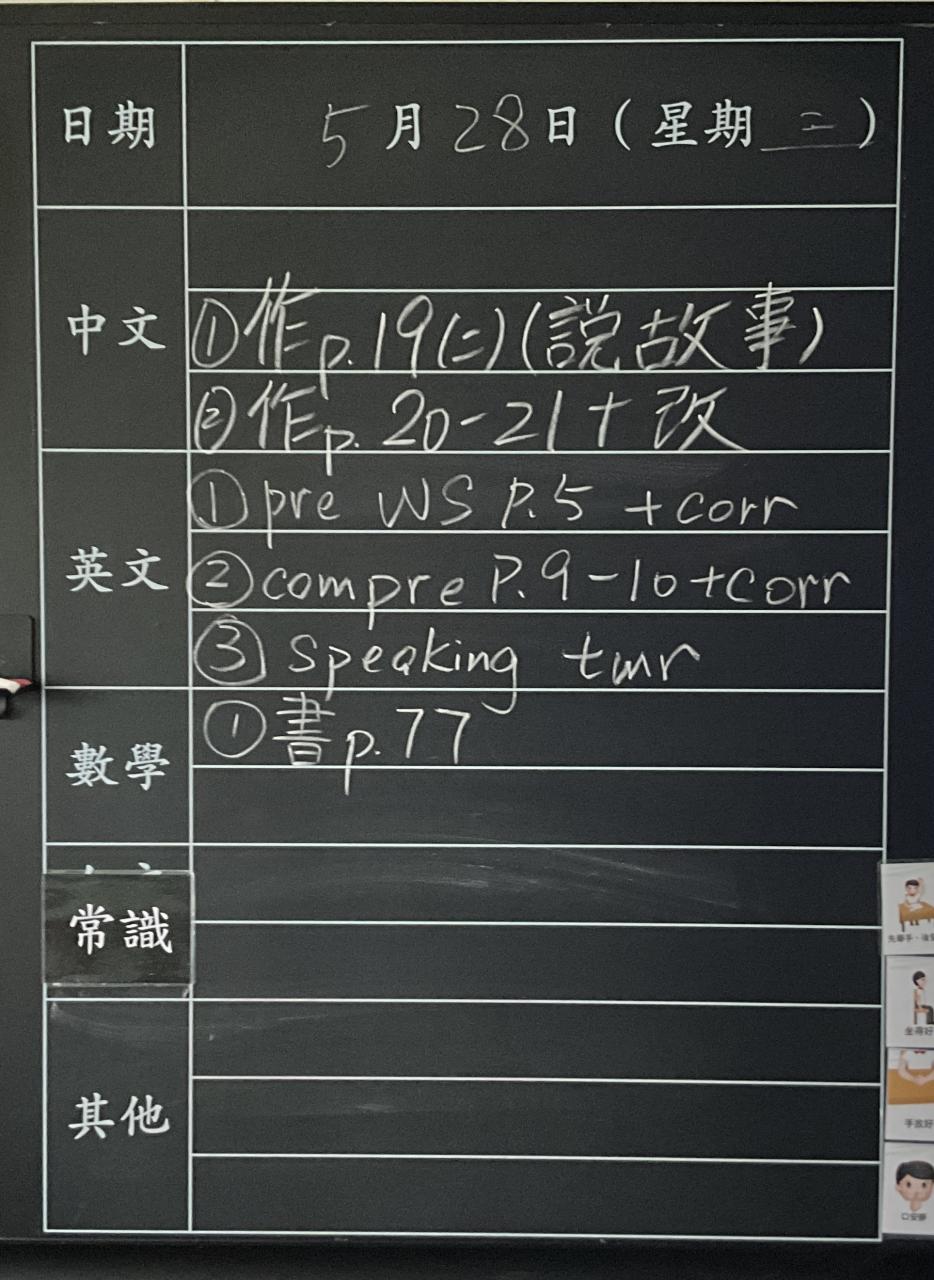 日期 5月28日(星期二)
中文
①作p.19(二)(説故事)
②作p. 20-21+改
英文
①pre WS P.5 +corr
②compre P.9-10+corr
③ speaking tmr
數學
①書p.77
常識
其他
坐得好
手放好
口安靜